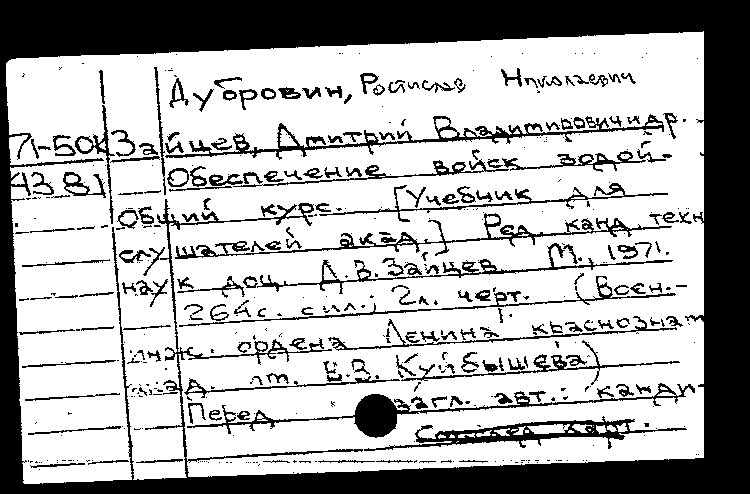 Дубровин, Ростислав Николаевич
71-50К Зайцев, Дмитрий Владимирович и др.
4381 Обеспечение войск водой.
Общий курс. [Учебник для
слушателей акад.] Ред. канд. техн
наук доц. Д.В. Зайцев. М., 1971.
264 с. с ил.; 2 л. черт. (Воен.-
инж. ордена Ленина краснознам
акад. им. В.В. Куйбышева)
Перед загл. авт.: канди-
След карт.